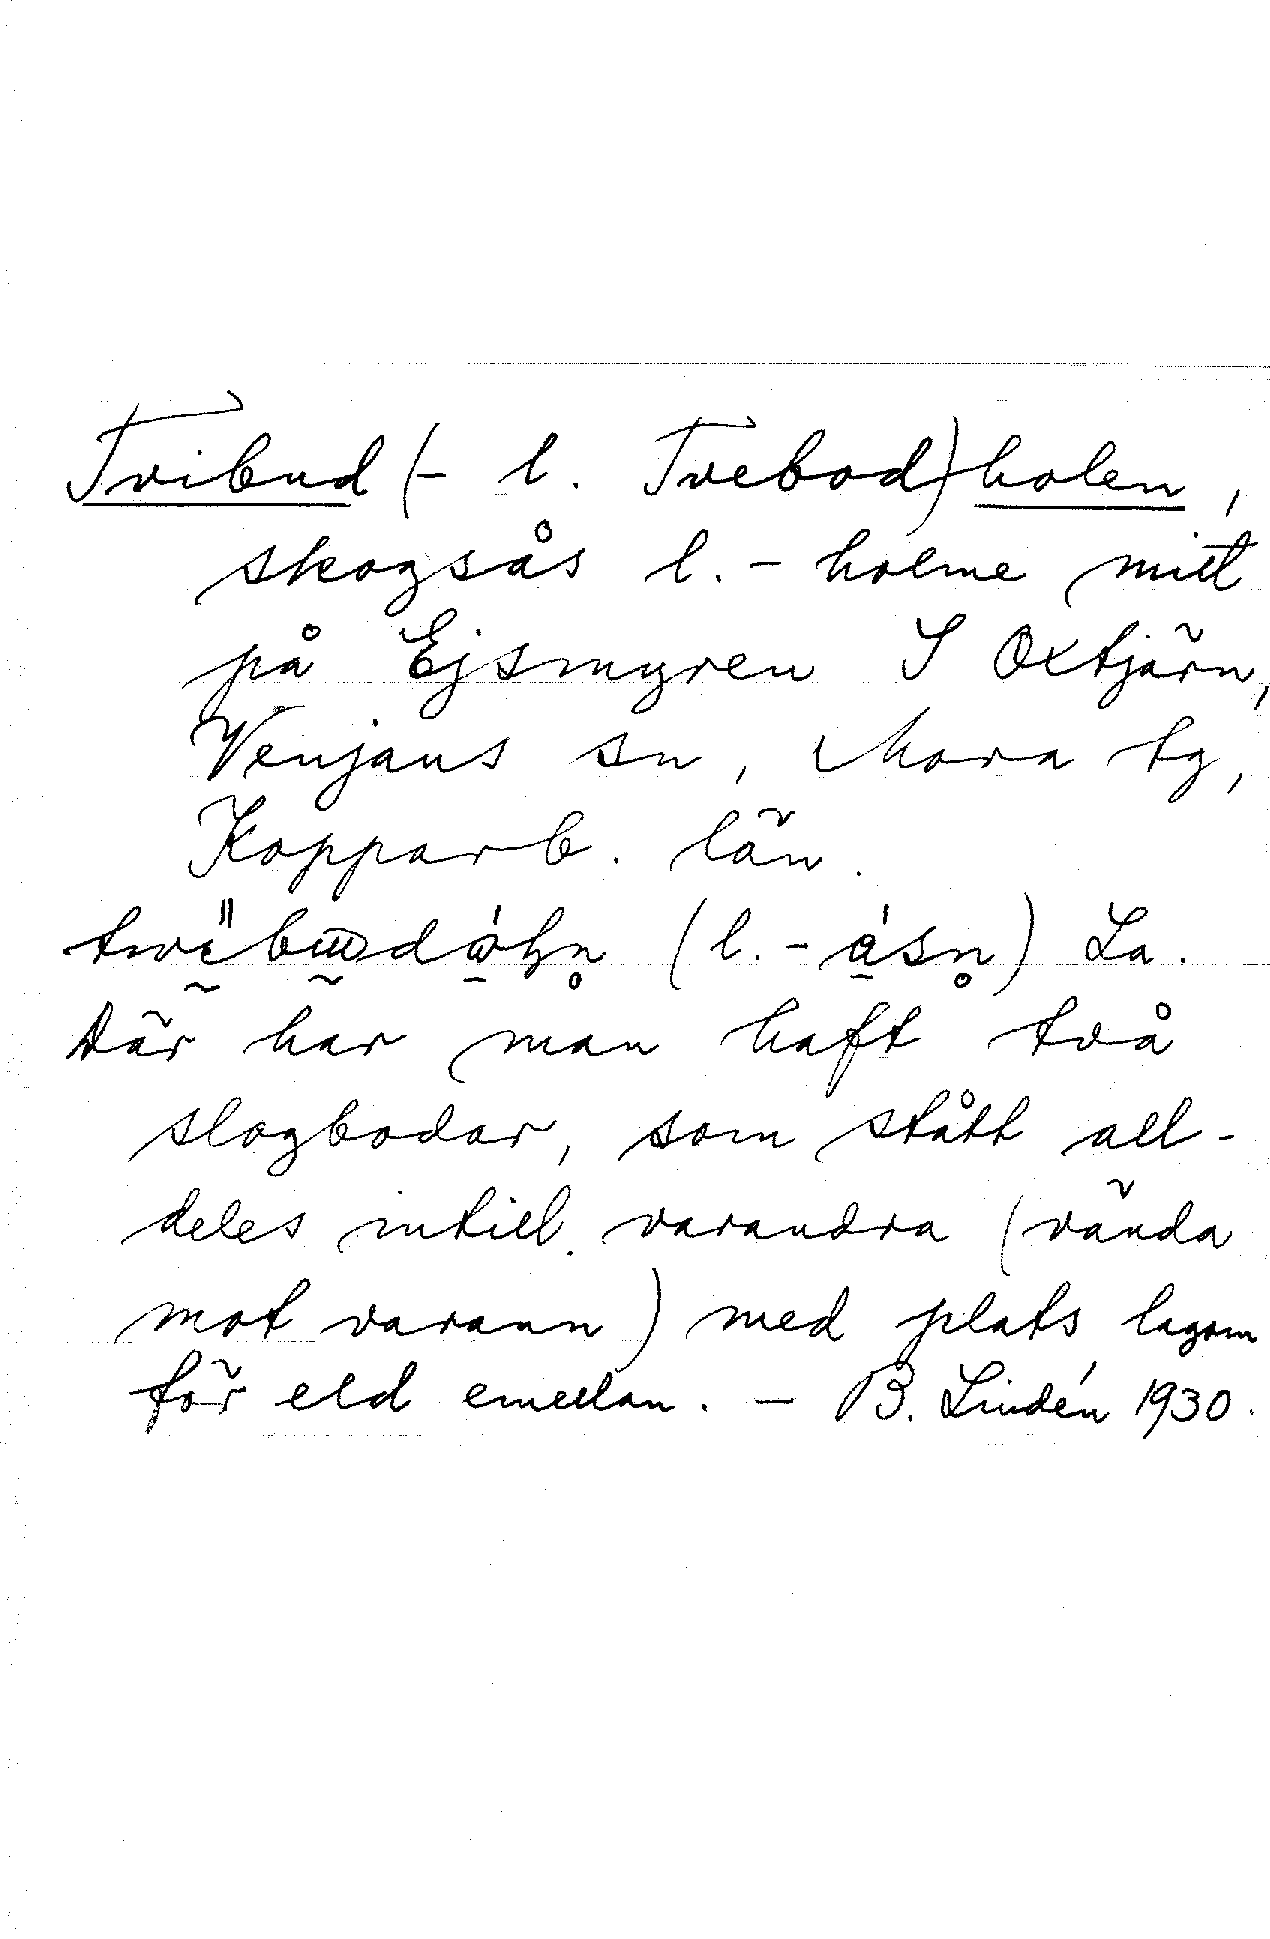 Tvibud (- l. Tvebod) holen,
skogsås l. - holme mitt
på Ejsmyren S Oxtjärn,
Venjans sn, Mora tg,
Kopparb. län.
(l. - ásn̥) La.
Där har man haft två
slogbodar, som stått all-
deles intill varandra (vända
mot varann) med plats lagom
för eld emellan. - B. Lindén 1930.